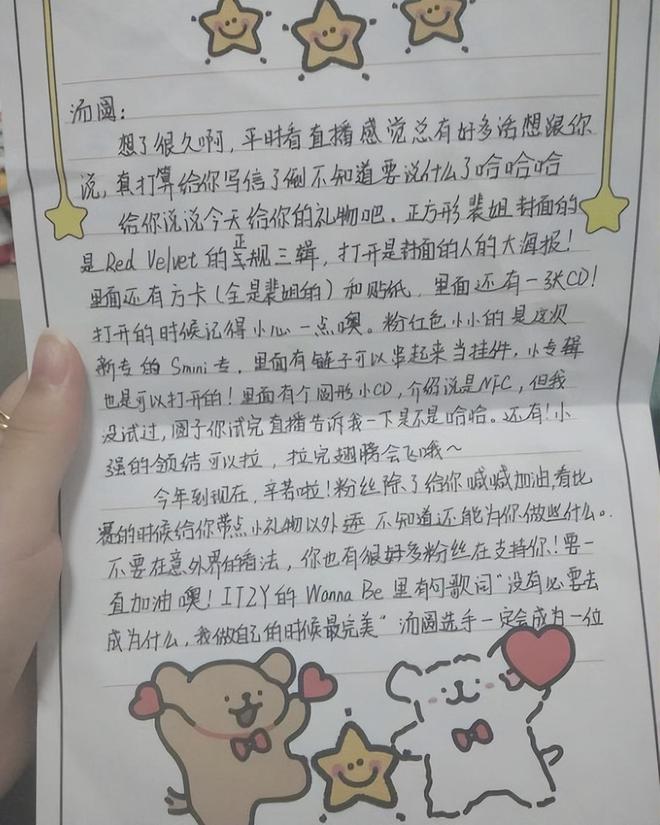 汤圆：
想了很久啊，平时看直播感觉总有好多话想跟你
说，真打算给你写信了倒不知道要说什么了哈哈哈
给你说说今天给你的礼物吧．正方形裴姐封面的
是Red Velvet的正规三辑，打开是封面的人的大海报！
里面还有方卡（全是裴姐的）和贴纸，里面还有一张CD！
打开的时候记得小心一点噢。粉红色小小的是这次
新专的Smini专，里面有链子可以串起来当挂件，小专辑
也是可以打开的！里面有个圆形小CD，介绍说是NFC，但我
没试过，圆子你试完直播告诉我一下是不是哈哈。还有！小
强的领结可以拉，拉完翅膀会飞哦～
今年到现在，辛苦啦！粉丝除了给你喊喊加油，看比
赛的时候给你带点小礼物以外 不知道还能为你做些什么。
不要在意外界的看法，你也有很好多粉丝在支持你！要一
直加油噢！ITZY的Wanna Be里有句歌词“没有必要去
成为什么，我做自己的时候最完美”汤圆选手一定会成为一位